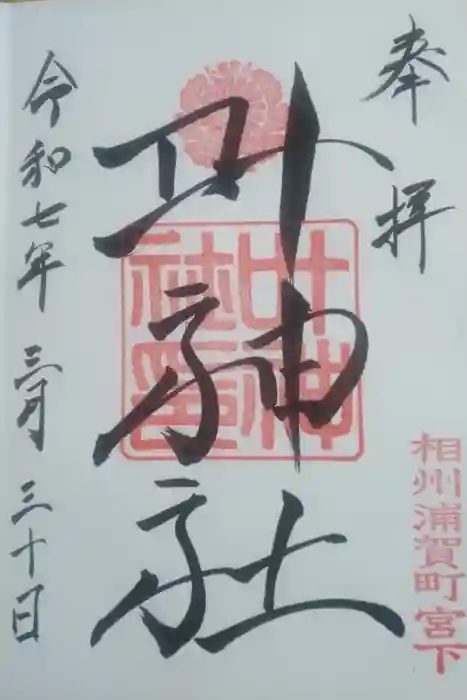 奉拝
叶神社
叶神社印
相州浦賀町宮下
令和七年 三月 三十日